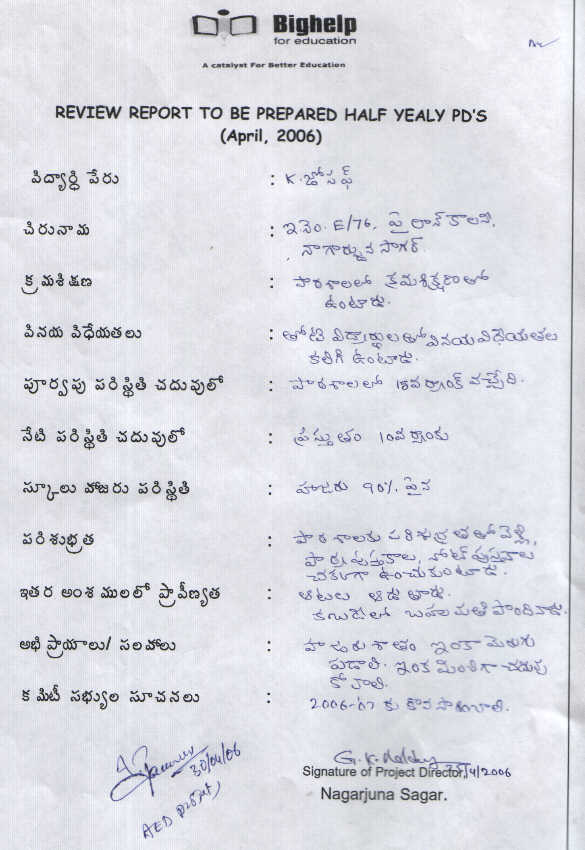 Bighelp
for education
A catalyst For Better Education
REVIEW REPORT TO BE PREPARED HALF YEALY PD'S
(April, 2006)
విద్యార్ధి పేరు : K. జోసఫ్
చిరునామ : ఇ.నెం. E/76, పైలాన్ కాలని,
నాగార్జున సాగర్.
క్రమశిక్షణ : పాఠశాలలో క్రమశిక్షణతో
ఉంటాడు.
వినయ విధేయతలు : తోటి విద్యార్థులతో వినయవిధేయతలు
కలిగి ఉంటాడు.
పూర్వపు పరిస్థితి చదువులో : పాఠశాలలో 18వ ర్యాంక్ వచ్చేది.
నేటి పరిస్థితి చదువులో : ప్రస్తుతం 10వ ర్యాంకు
స్కూలు హాజరు పరిస్థితి : హాజరు 90% పైన
పరిశుభ్రత : పాఠశాలకు పరిశుభ్రతతో వెళ్లి,
పాఠ్యపుస్తకాలు, నోట్ పుస్తకాలు
చక్కగా ఉంచుకుంటాడు.
ఇతర అంశములలో ప్రావీణ్యత : ఆటలు ఆడుతాడు.
కబడిలో బహుమతి పొందినాడు.
అభిప్రాయాలు/ సలహాలు : హాజరు శాతం ఇంకా మెరుగు
పడాలి. ఇంక మంచిగా చదువు
కోవాలి.
కమిటీ సభ్యుల సూచనలు : 2006-07 కు కొనసాగించాలి.
30/04/06
G.K. Reddy
25/4/2006
Signature of Project Director,
Nagarjuna Sagar.
AED